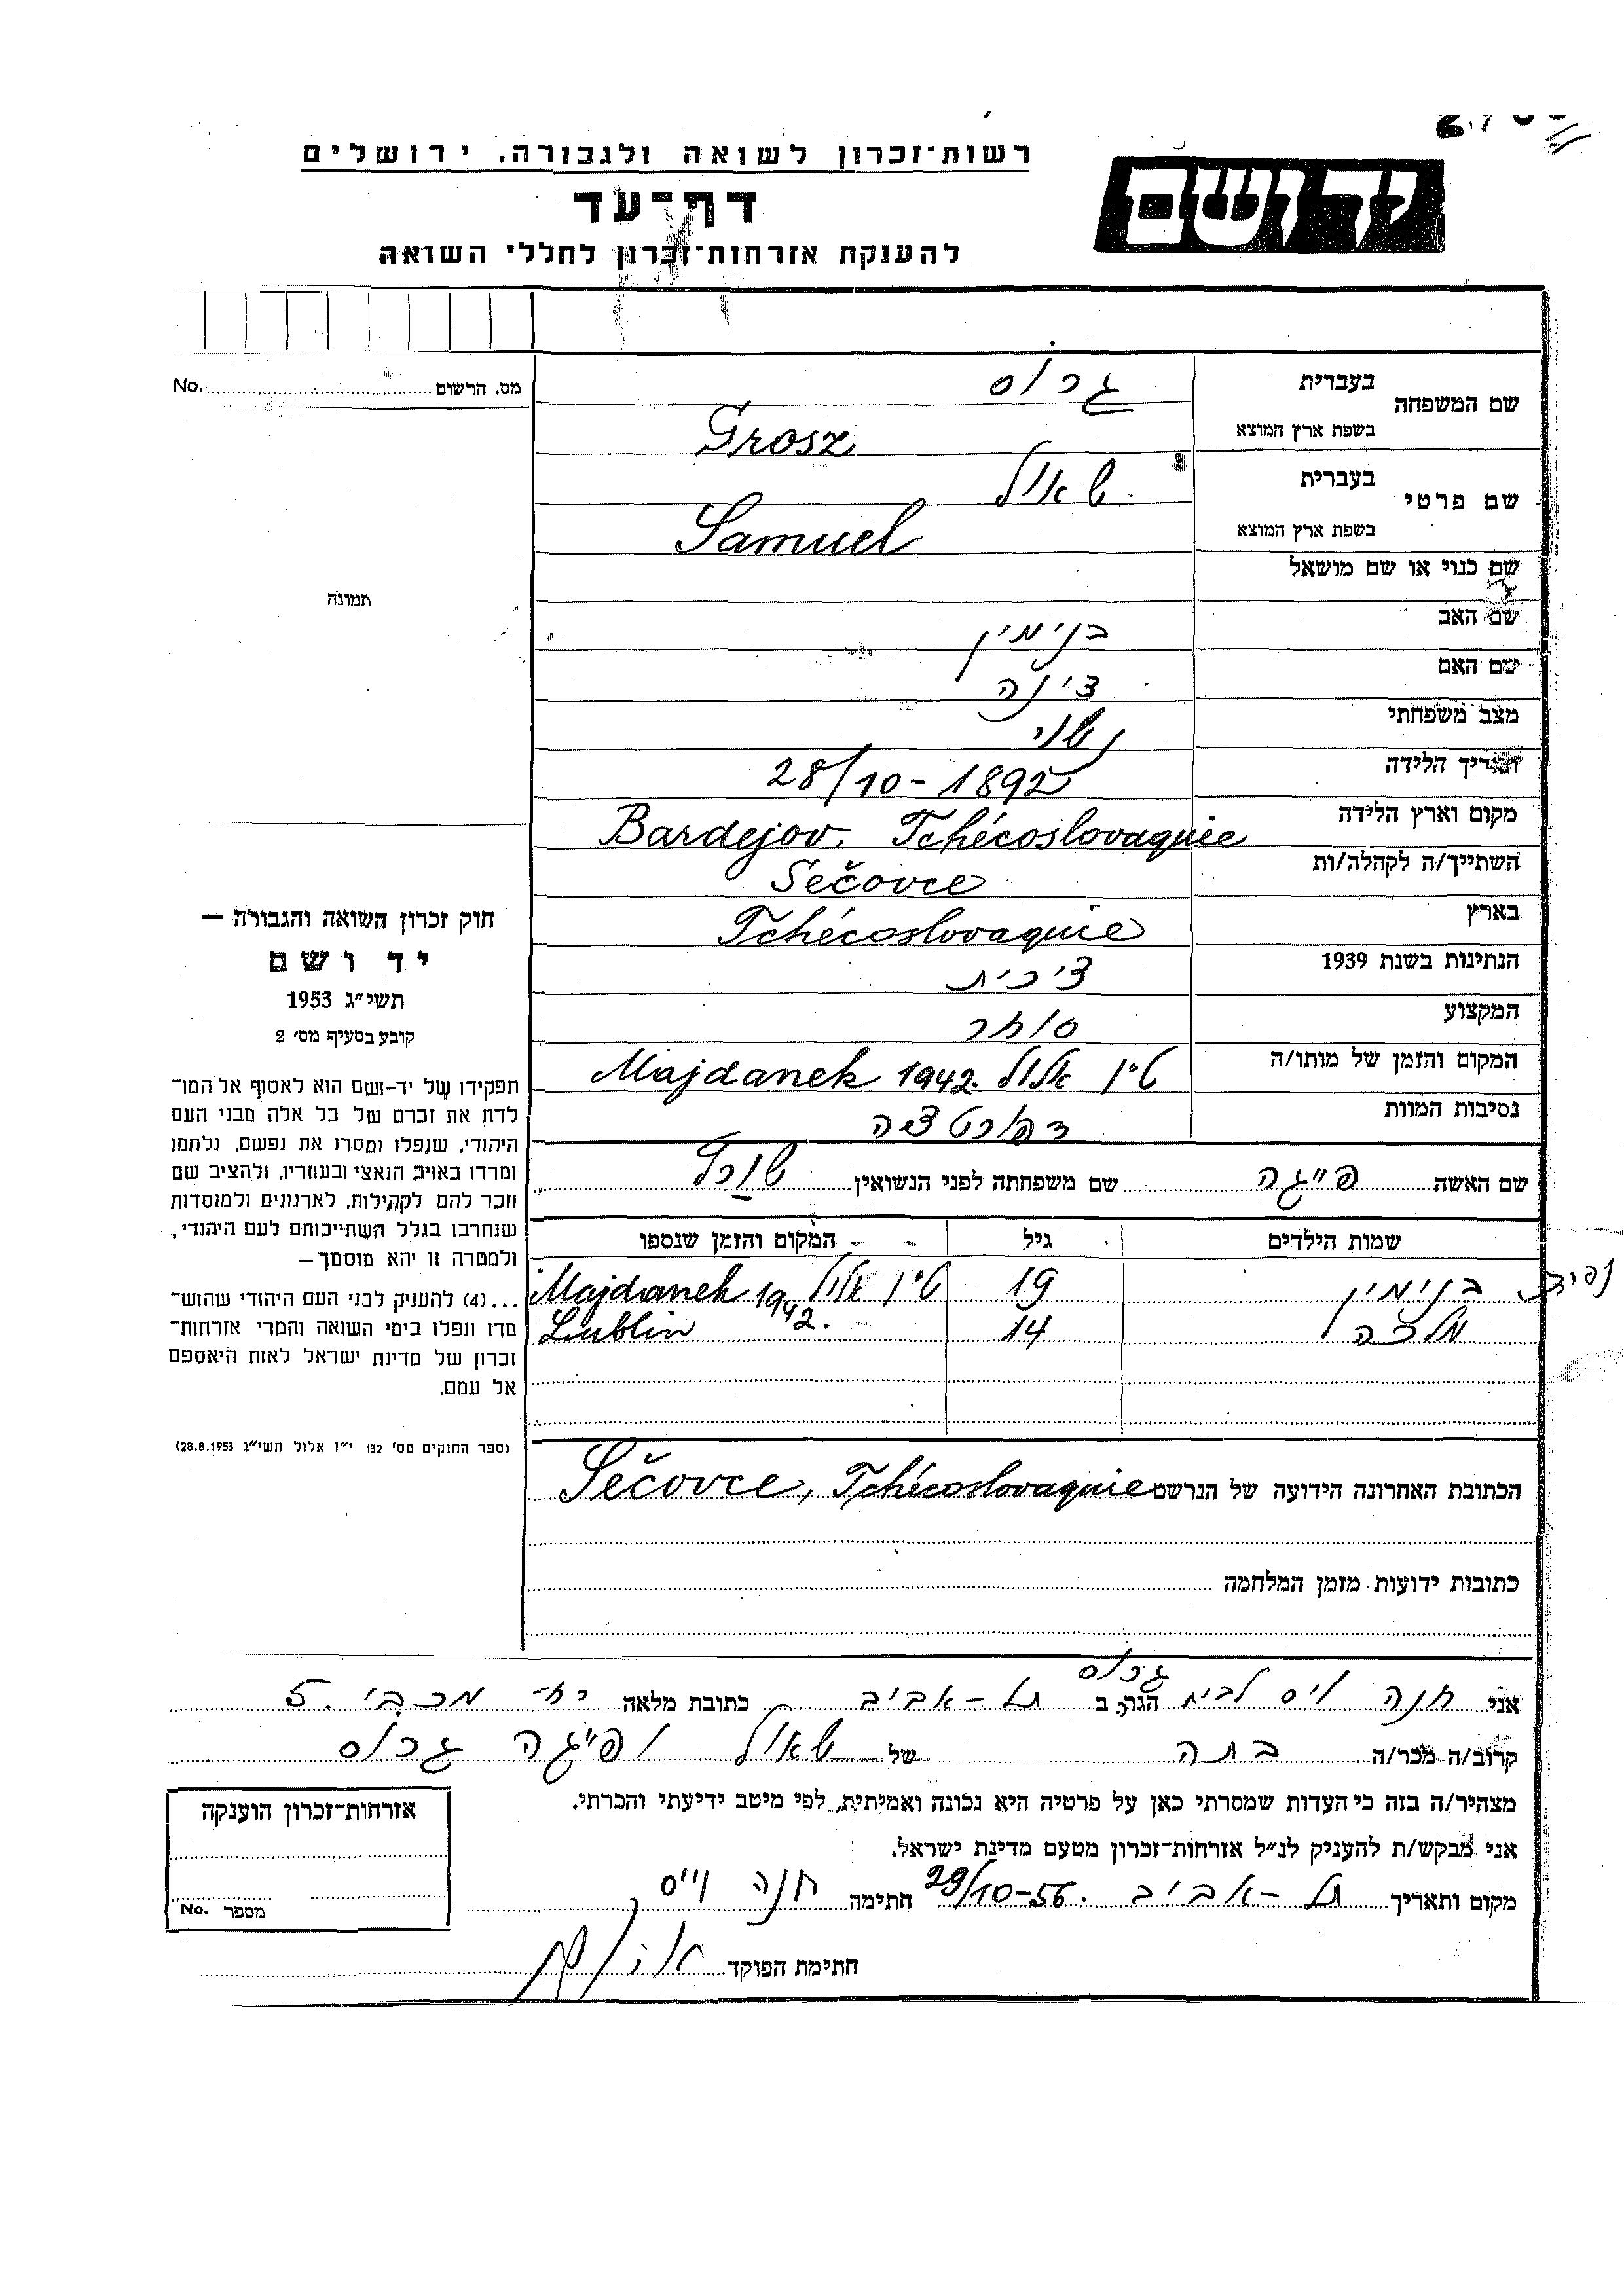 רשות־זכרון לשואה ולגבורה, ירושלים
יד ושם
דף־עד
להענקת אזרחות־זכרון לחללי השואה
מס. הרשום No.
תמונה
חוק זכרון השואה והגבורה —
יד ושם
תשי״ג 1953
קובע בסעיף מס׳ 2
תפקידו של יד־ושם הוא לאסוף אל המו־
לדת את זכרם של כל אלה מבני העם
היהודי, שנפלו ומסרו את נפשם, נלחמו
ומרדו באויב הנאצי ובעוזריו, ולהציב שם
וזכר להם לקהילות, לארגונים ולמוסדות
שנחרבו בגלל השתייכותם לעם היהודי,
ולמטרה זו יהא מוסמך —
...(4) להעניק לבני העם היהודי שהוש־
מדו ונפלו בימי השואה והמרי אזרחות־
זכרון של מדינת ישראל לאות היאספם
אל עמם.
(ספר החוקים מס׳ 132 י״ז אלול תשי״ג 28.8.1953)
שם המשפחה בעברית גרוס
בשפת ארץ המוצא Grosz
שם פרטי בעברית שאול
בשפת ארץ המוצא Samuel
שם כנוי או שם מושאל
שם האב בנימין
שם האם צינה
מצב משפחתי נשוי
תאריך הלידה 28/10-1892
מקום וארץ הלידה Bardejov. Tchécoslovaquie
השתייך/ה לקהלה/ות Sečovce
בארץ Tchécoslovaquie
הנתינות בשנת 1939 צ׳כית
המקצוע סוחר
המקום והזמן של מותו/ה ט״ן אלול Majdanek 1942.
נסיבות המוות דפורטציה
שם האשה פייגה שם משפחתה לפני הנשואין
שמות הילדים גיל המקום והזמן שנספו
בנימין 19 ט״ן אלול Majdanek 1942.
מלכה 14 Lublin
הכתובת האחרונה הידועה של הנרשם Sečovce, Tchécoslovaquie
כתובות ידועות מזמן המלחמה
גרוס
אני חנה ויס לבית הגרה ב תל-אביב כתובת מלאה רח׳ מכבי 5.
קרוב/ה מכר/ה בתה של שאול ופייגה גרוס
מצהיר/ה בזה כי העדות שמסרתי כאן על פרטיה היא נכונה ואמיתית, לפי מיטב ידיעתי והכרתי.
אני מבקש/ת להעניק לנ״ל אזרחות־זכרון מטעם מדינת ישראל.
מקום ותאריך תל-אביב. 29/10-56 חתימה חנה וייס
חתימת הפוקד
אזרחות־זכרון הוענקה
מספר No.